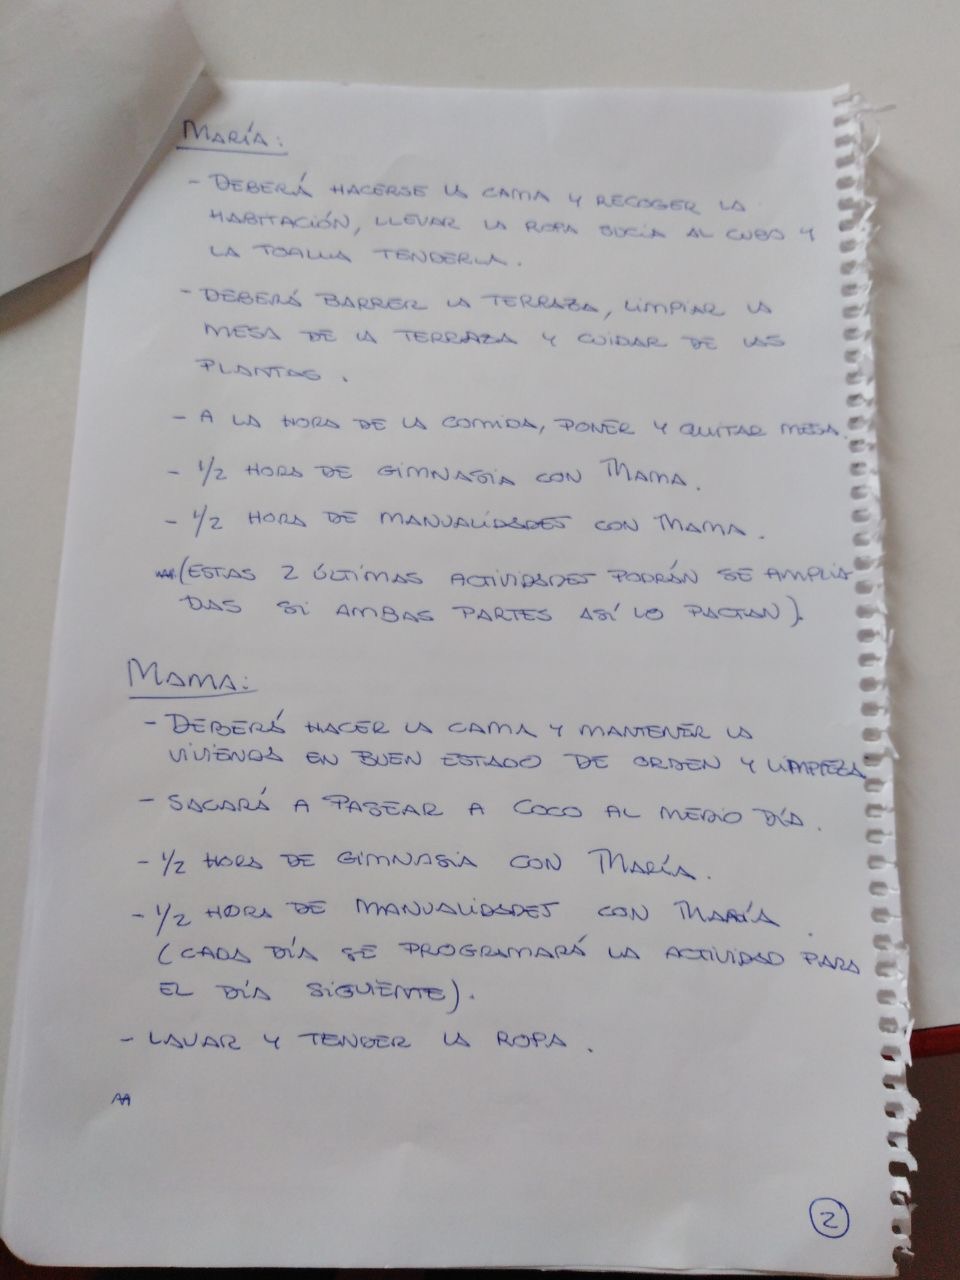 MARÍA:
- DEBERÁ HACERSE LA CAMA Y RECOGER LA
HABITACIÓN, LLEVAR LA ROPA SUCIA AL CUBO Y
LA TOALLA TENDERLA.
- DEBERÁ BARRER LA TERRAZA, LIMPIAR LA
MESA DE LA TERRAZA Y CUIDAR DE LAS
PLANTAS.
- A LA HORA DE LA COMIDA, PONER Y QUITAR MESA.
- 1/2 HORA DE GIMNASIA CON MAMA.
- 1/2 HORA DE MANUALIDADES CON MAMA.
(ESTAS 2 ÚLTIMAS ACTIVIDADES PODRÁN SE AMPLIA
DAS SI AMBAS PARTES ASÍ LO PACTAN).
MAMA:
- DEBERÁ HACER LA CAMA Y MANTENER LA
VIVIENDA EN BUEN ESTADO DE ORDEN Y LIMPIEZA
- SACARÁ A PASEAR A COCO AL MEDIO DÍA.
- 1/2 HORA DE GIMNASIA CON MARÍA.
- 1/2 HORA DE MANUALIDADES CON MARÍA.
(CADA DÍA SE PROGRAMARÁ LA ACTIVIDAD PARA
EL DÍA SIGUIENTE).
- LAVAR Y TENDER LA ROPA.
2